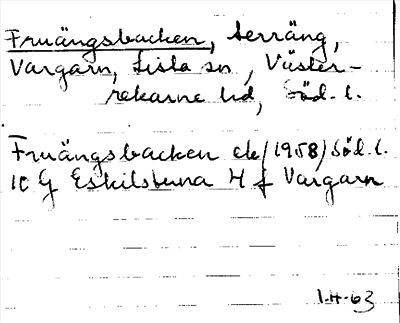 Fruängsbacken, terräng,
Vargarn, Lista sn, Väster-
rekarne hd, Söd. l.
Fruängsbacken ek/1958/Söd. l.
10 G Eskilstuna 4 f Vargarn
I.H-63